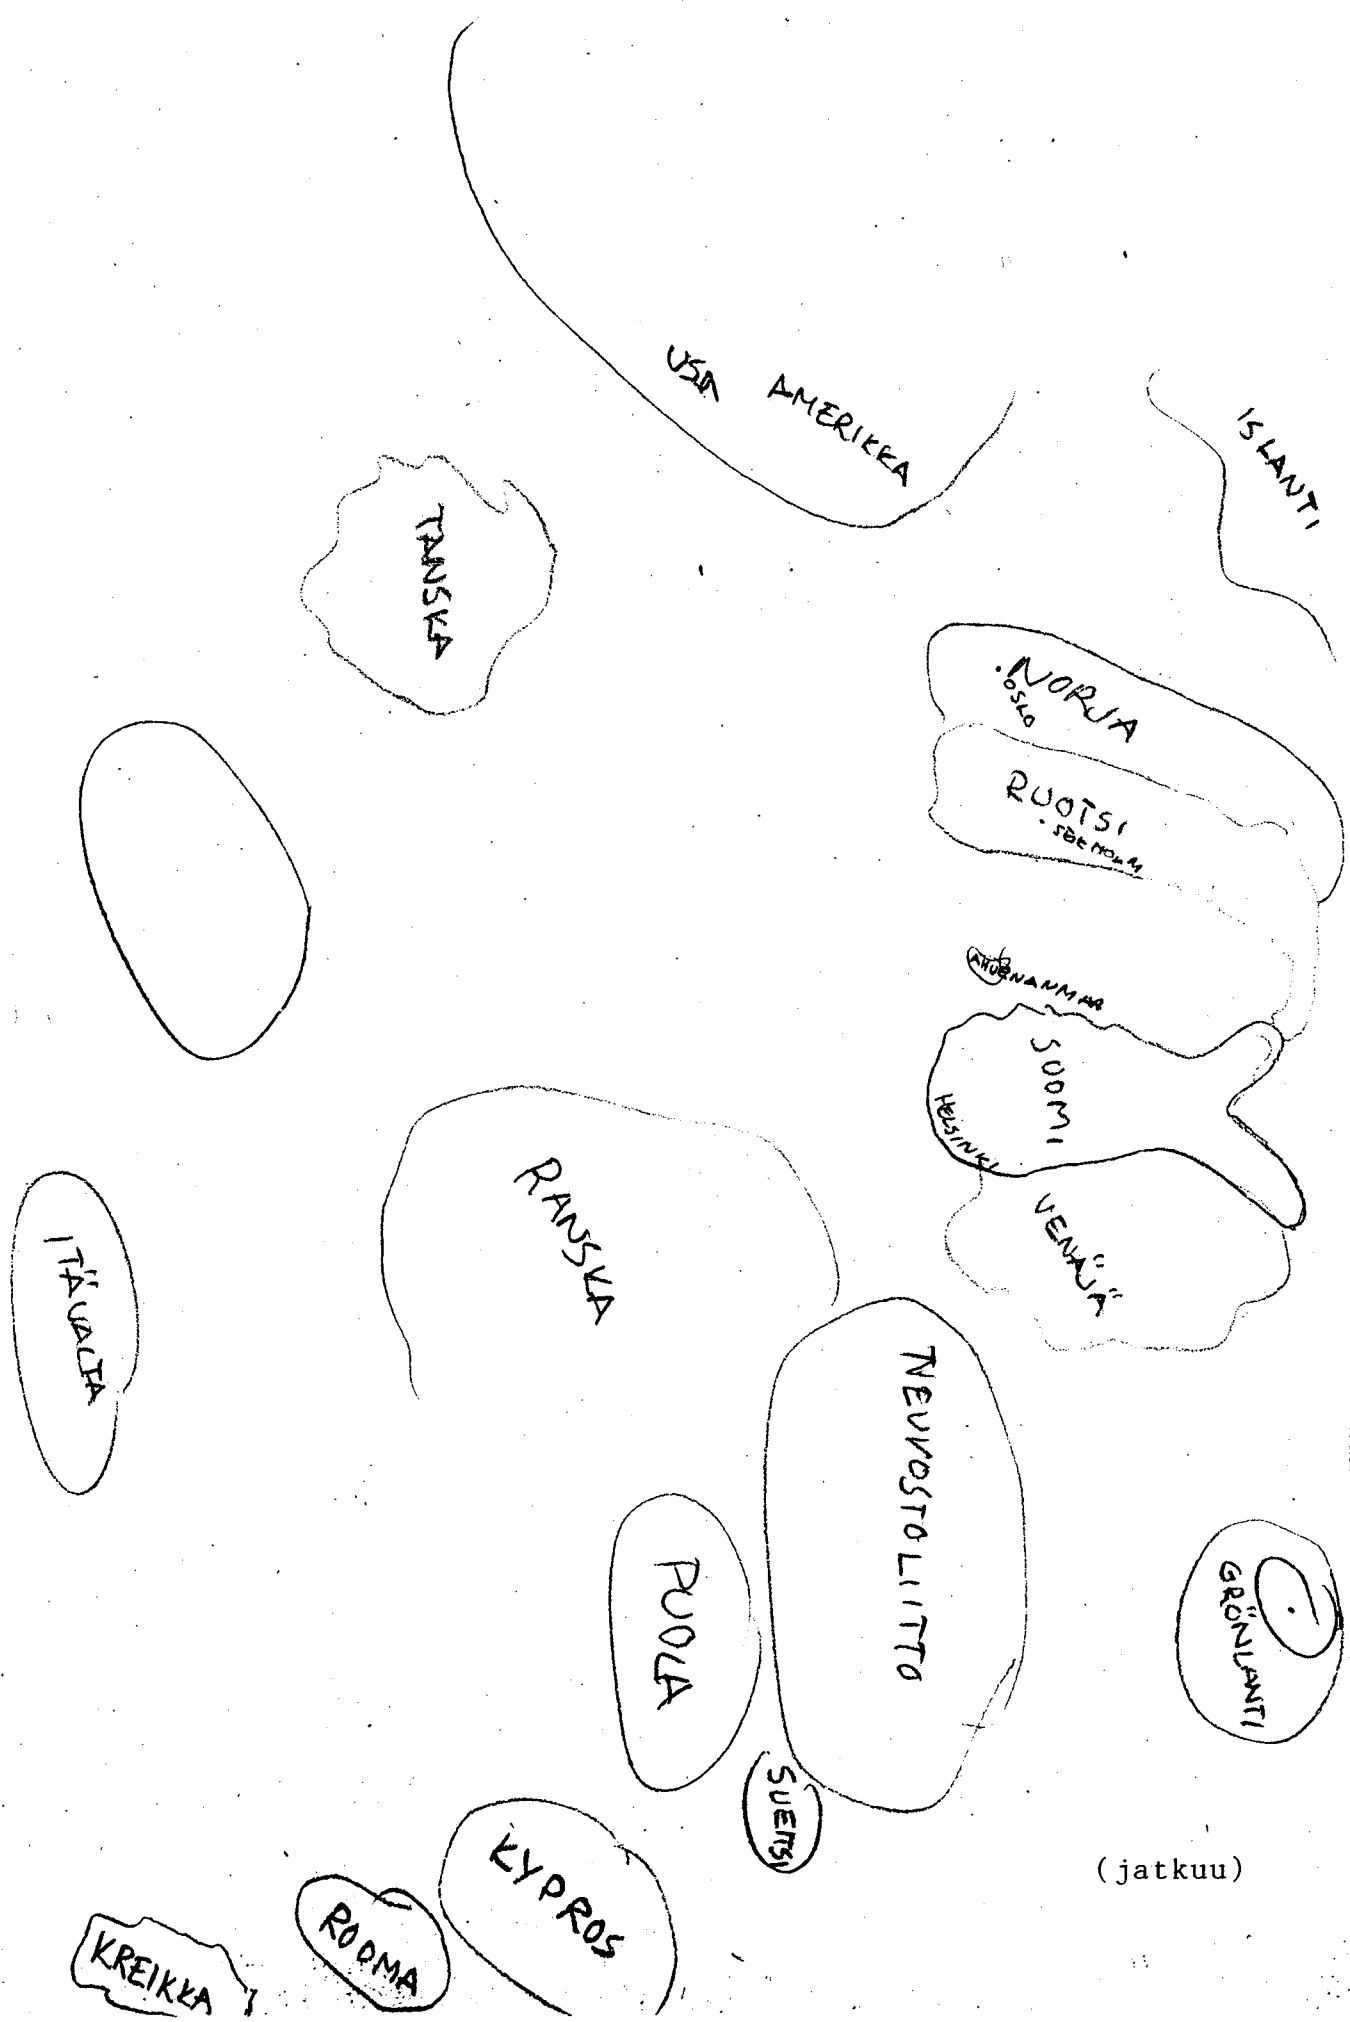 USA AMERIKKA
ISLANTI
TANSKA
NORJA
OSLO
RUOTSI
AHVENANMAA
SUOMI
HELSINKI
VENÄJÄ
RANSKA
ITÄVALTA
NEUVOSTOLIITTO
PUOLA
GRÖNLANTI
SVEITSI
KYPROS
ROOMA
KREIKKA
(jatkuu)